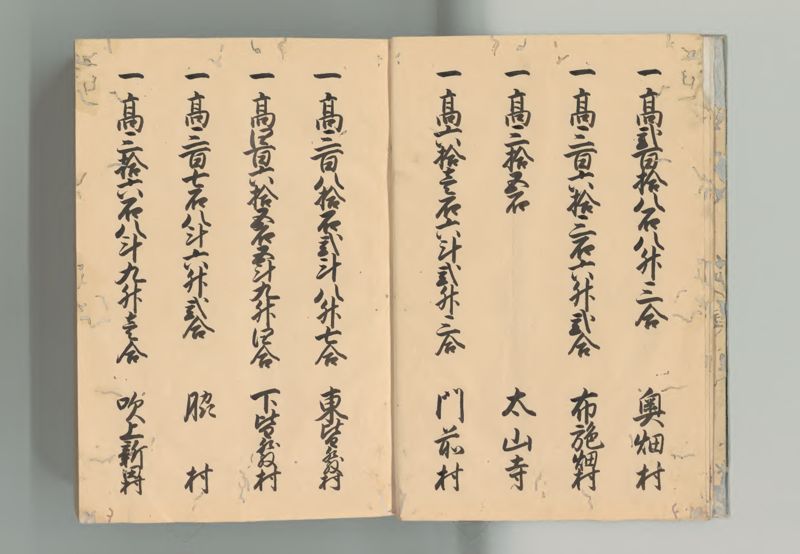 一 高弐百拾八石八升三合 奥畑村
一 高三百六拾三石六升弐合 布施畑村
一 高三拾五石 太山寺
一 高六拾壱石六斗弐升三合 門前村
一 高三百八拾石弐斗八升七合 東皆発村
一 高四百六拾五石五斗九升四合 下皆発村
一 高三百七石八斗六升弐合 脇村
一 高三拾六石八斗九升壱合 吹上新田村